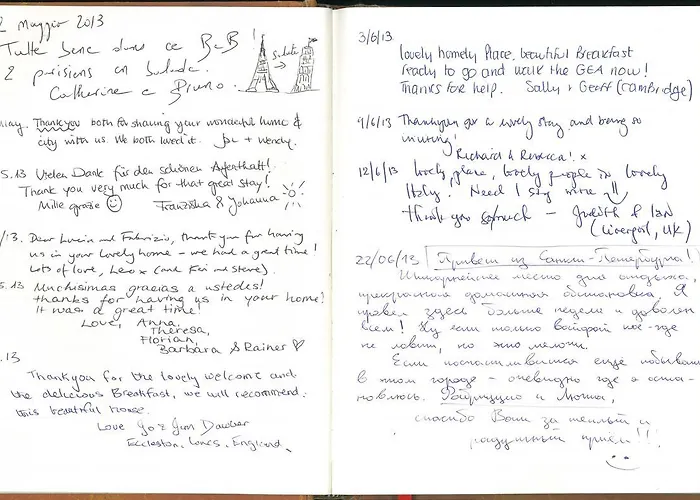 2 Maggio 2013
Tutto bene dove ce B&B!
2 parisiens en balade.
Catherine e Bruno.
May. Thankyou both for sharing your wonderful home &
city with us. We both loved it. Jo + Wendy.
5.13 Vielen Dank für den schönen Aufenthalt!
Thank you very much for that great stay!
Mille grazie Franziska & Johanna
/13. Dear Lucia and Fabrizio, thank you for having
us in your lovely home – we had a great time!
Lots of love, Leo x (and Keri and Steve).
5.13 Muchisimas gracias a ustedes!
thanks for having us in your home!
It was a great time!
Love, Anna,
Theresa,
Florian,
Barbara & Rainer
.13
Thankyou for the lovely welcome and
the delicious Breakfast, we will recommend
this beautiful house.
Love Jo & Jim Dawber
Eccleston, Lancs, England.
3/6/13
Lovely homely Place, beautiful Breakfast
ready to go and walk the GEA now!
Thanks for help. Sally + Geoff (Cambridge)
9/6/13 Thankyou for a lovely stay and being so
inviting!
Richard & Rebecca! x
12/6/13 Lovely place, lovely people in lovely
Italy. Need I say more!!
Thank you so much – Judith & Ian
(Liverpool, UK)
22/06/13 Привет из Санкт-Петербурга!!
место для отдыха,
прекрасная домашняя обстановка. Я
провел здесь больше недели и доволен
всем! Ну если только вайфай кое-где
не ловит, но это мелочи.
Если посчастливится еще побывать
в этом городе – очевидно где я оста-
новлюсь. Фабрицио и
спасибо Вам за теплый и
радушный приём!!!